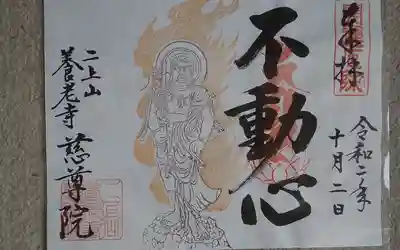 奉拝
令和二年
十月二日
不動心
二上山
養老寺 慈尊院